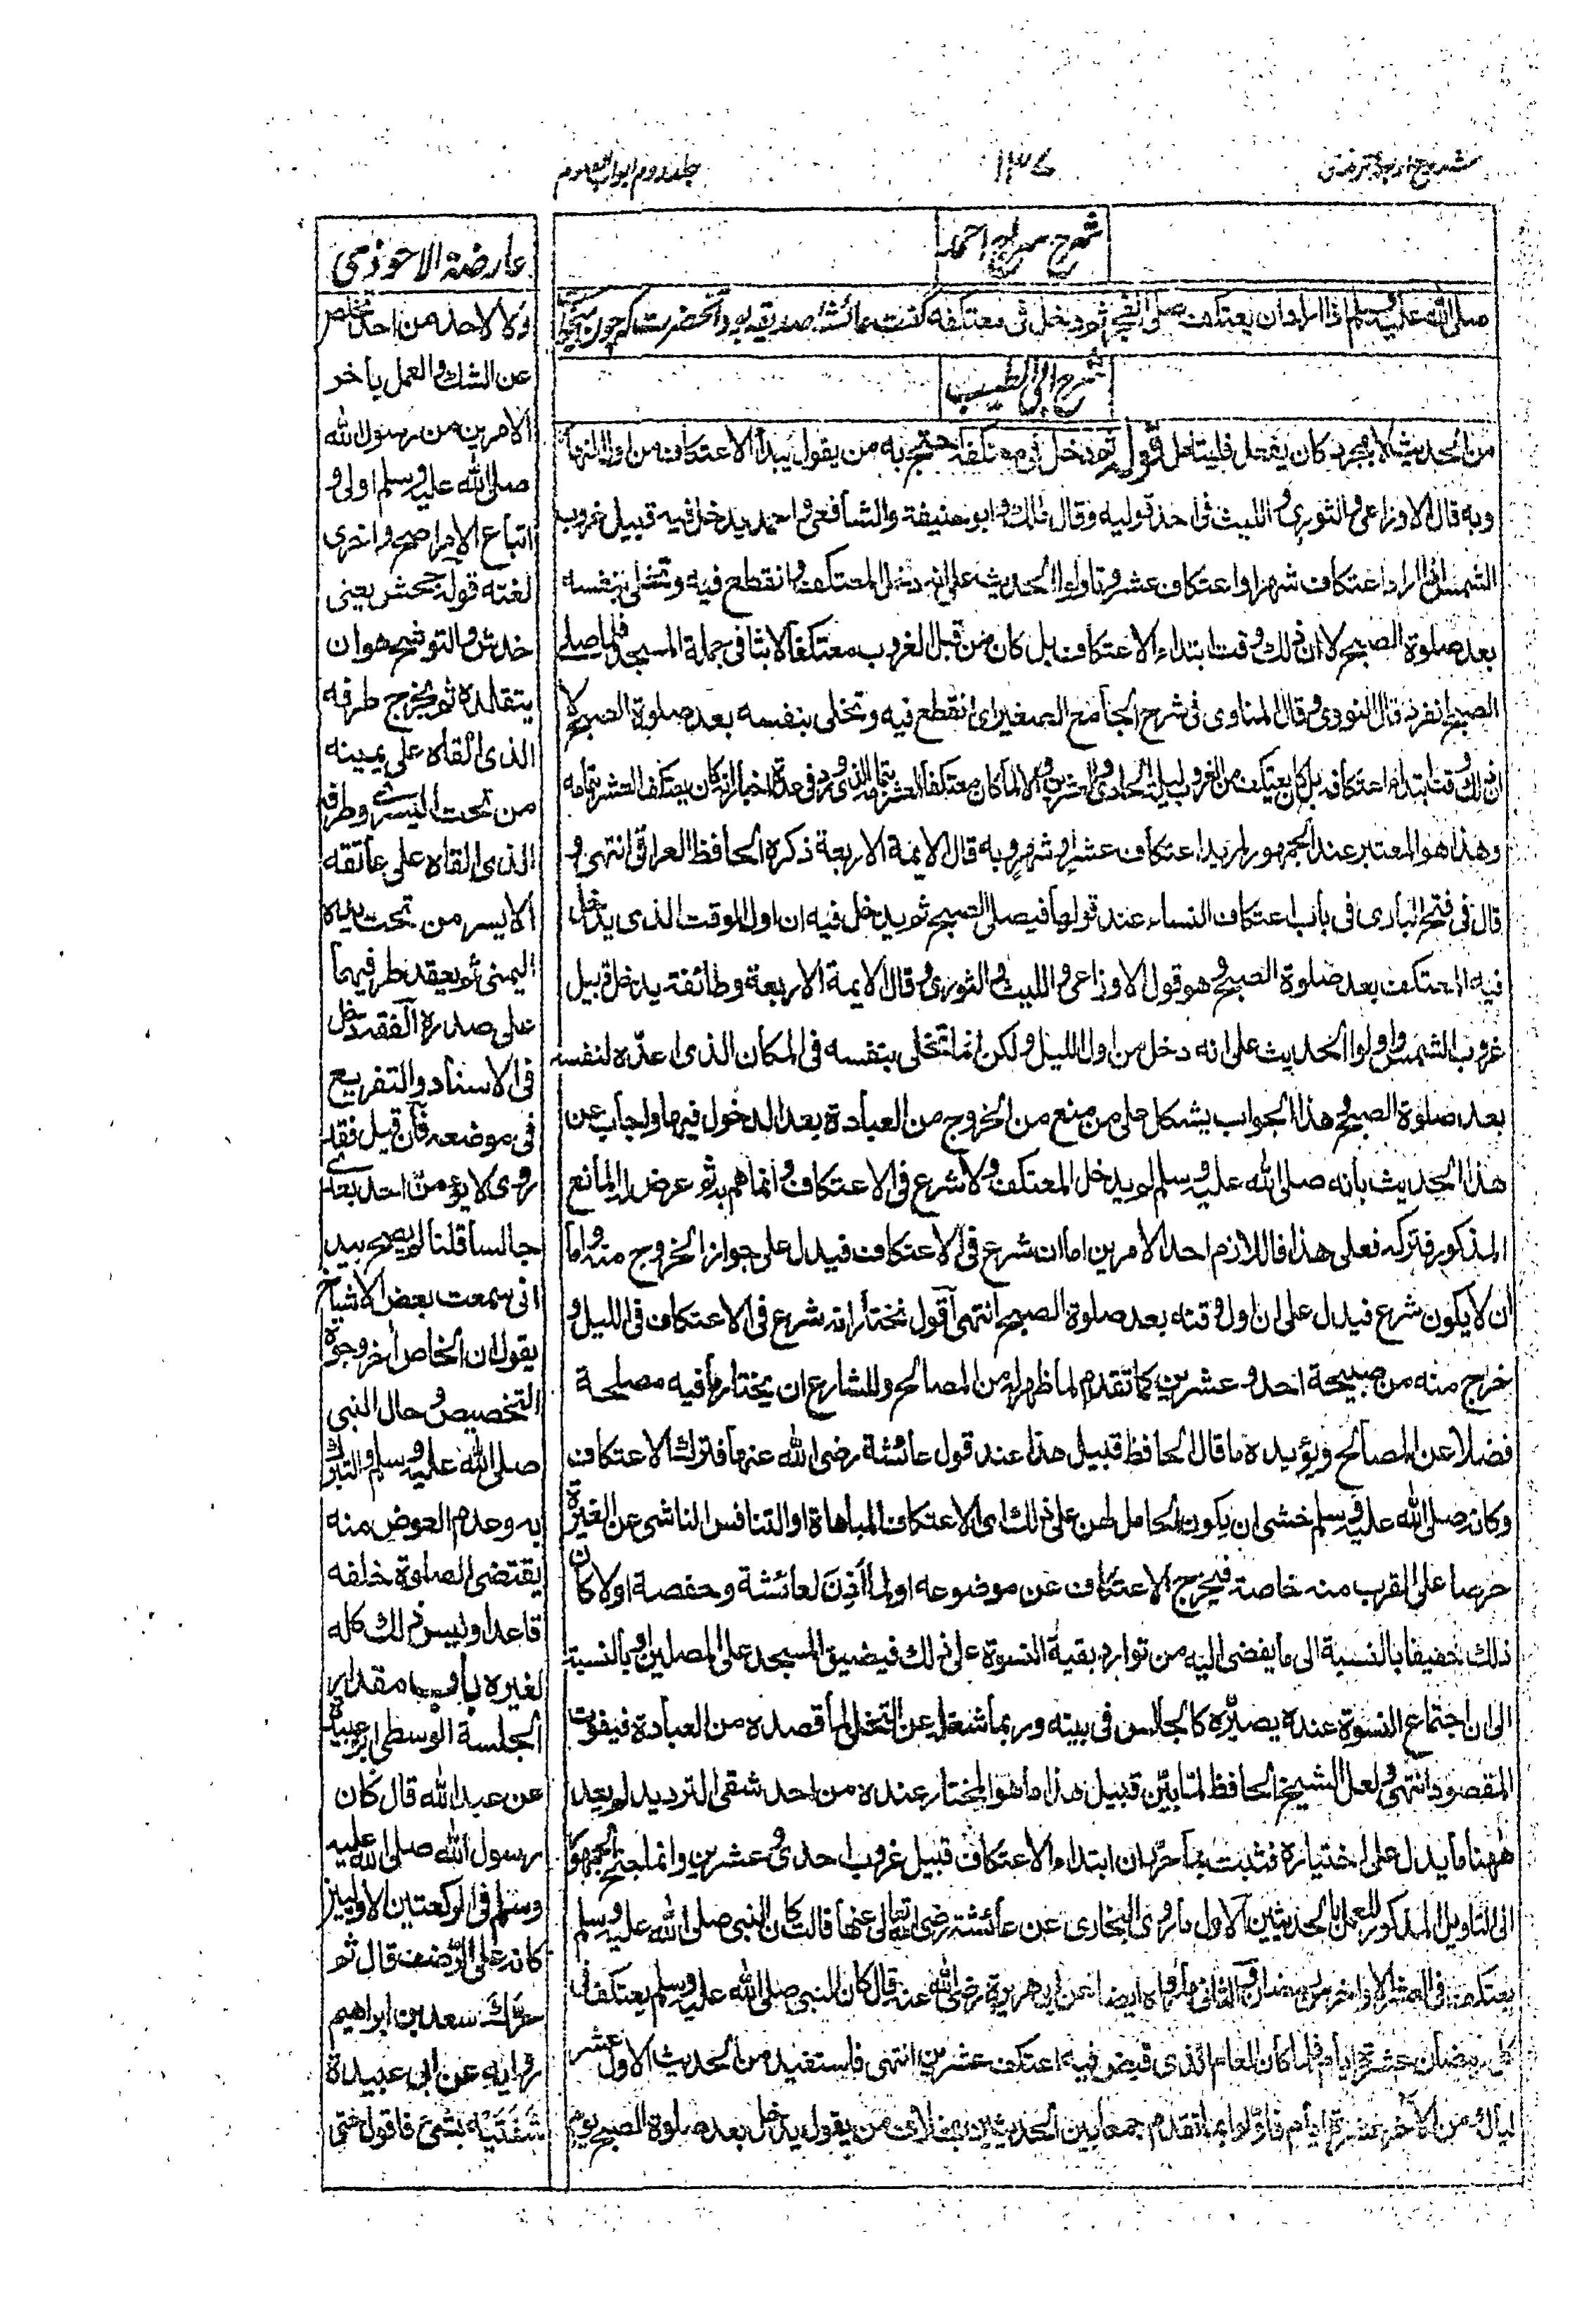 جلد دوم ابواب الصوم
شرح سراج احمد
صلى الله عليه وسلم اذا اراد ان يعتكف صلى الفجر ثم دخل فى معتكفه گفت عائشه صديقه بود آنحضرت كه چون
شرح ابى الطيب
من الحديث لا بمجرد كان يفعل فليتامل قوله ثم دخل فى معتكفه احتج به من يقول يبدأ الاعتكاف من اول النهار
وبه قال الاوزاعى والثورى والليث فى احد قوليه وقال مالك وابو حنيفة والشافعى واحمد يدخل فيه قبيل غروب
الشمس اذا اراد اعتكاف شهر او اعتكاف عشر وتاولوا الحديث على انه دخل المعتكف وانقطع فيه وتخلى بنفسه
بعد صلوة الصبح لا ان ذلك وقت ابتداء الاعتكاف بل كان من قبل الغروب معتكفا لابثا فى جملة المسجد فلما صلى
الصبح انفرد قال النووى وقال المناوى فى شرح الجامع الصغير اى انقطع فيه وتخلى بنفسه بعد صلوة الصبح لا
ان ذلك وقت ابتداء اعتكافه بل كان يعتكف من الغروب ليلة الحادى والعشرين والا لما كان معتكفا العشر بتمامه الذى ورد فى عدة اخبار انه كان يعتكف العشر بتمامه
وهذا هو المعتبر عند الجمهور لمريد اعتكاف عشر او شهر وبه قال الايمة الاربعة ذكره الحافظ العراقى انتهى و
قال فى فتح البارى فى باب اعتكاف النساء عند قولها فيصلى الصبح ثم يدخل فيه ان اول الوقت الذى يدخل
فيه المعتكف بعد صلوة الصبح وهو قول الاوزاعى والليث والثورى وقال الايمة الاربعة وطائفة يدخل قبيل
غروب الشمس واولوا الحديث على انه دخل من اول الليل ولكن انما تخلى بنفسه فى المكان الذى اعده لنفسه
بعد صلوة الصبح وهذا الجواب يشكل على من منع من الخروج من العبادة بعد الدخول فيها واجاب عن
هذا الحديث بانه صلى الله عليه وسلم لم يدخل المعتكف ولا شرع فى الاعتكاف وانما هم به ثم عرض له المانع
المذكور فتركه فعلى هذا فاللازم احد الامرين اما ان شرع فى الاعتكاف فيدل على جواز الخروج منه واما
ان لا يكون شرع فيدل على ان اول وقته بعد صلوة الصبح انتهى اقول نختار انه شرع فى الاعتكاف فى الليل و
خرج منه من صبيحة احد وعشرين كما تقدم لما ظهر له من المصالح وللشارع ان يختار ما فيه مصلحة
فضلا عن المصالح ويؤيده ما قال الحافظ قبيل هذا عند قول عائشة رضى الله عنها فترك الاعتكاف
وكانه صلى الله عليه وسلم خشى ان يكون الحامل لهن على ذلك اى الاعتكاف المباهاة او التنافس الناشى عن الغيرة
حرصا على القرب منه خاصة فيخرج الاعتكاف عن موضوعه او لما اَذِنَ لعائشة وحفصة اولا كان
ذلك خفيفا بالنسبة الى ما يفضى اليه من توارد بقية النسوة على ذلك فيضيق المسجد على المصلين او بالنسبة
الى ان اجتماع النسوة عنده يصيّره كالجالس فى بيته وربما شغلنه عن التخلى لما قصده من العبادة فيفوت
المقصود انتهى ولعل الشيخ الحافظ لما بيّن قبيل هذا ما هو المختار عنده من احد شقى الترديد لم يعد
ههنا ما يدل على اختياره فثبت بما حرر ان ابتداء الاعتكاف قبيل غروب احدى وعشرين وانما احتج الجمهور
الى التاويل المذكور للعمل بالحديثين الاول ما روى البخارى عن عائشة رضى الله تعالى عنها قالت كان النبى صلى الله عليه وسلم
يعتكف فى العشر الاواخر من رمضان والثانى ما رواه ايضا عن ابى هريرة رضى الله عنه قال كان النبى صلى الله عليه وسلم يعتكف فى
كل رمضان عشرة ايام فلما كان العام الذى قبض فيه اعتكف عشرين انتهى فاستفيد من الحديث الاول عشر
ليال من الآخر عشرة ايام فاولوا بما تقدم جمعا بين الحديثين بخلاف من يقول يدخل بعد صلوة الصبح يوم
عارضة الاحوذى
ولا لاحد من احد تخلص
عن الشك والعمل بآخر
الامرين من رسول الله
صلى الله عليه وسلم اولى و
اتباع الامر اصح واخرى
لغته قوله جحش يعنى
خدش والتوشح هو ان
يتقلده ثم يخرج طرفه
الذى القاه على يمينه
من تحت اليسرى وطرفه
الذى القاه على عاتقه
الايسر من تحت يده
اليمنى ثم يعقد طرفيهما
على صدره الفقه تدخل
فى الاسناد والتفريع
فى موضعه فان قيل فقد
روى لا يؤمن احد بعدى
جالسا قلنا لم يصح بيد
انى سمعت بعض الاشياخ
يقول ان الخاص احد وجوه
التخصيص وحال النبى
صلى الله عليه وسلم والتبرك
به وعدم العوض منه
يقتضى الصلوة خلفه
قاعدا وليس ذلك كله
لغيره باب مقدار
الجلسة الوسطى ابو عبيدة
عن عبد الله قال كان
رسول الله صلى الله عليه
وسلم فى الركعتين الاوليين
كانه على الرضف قال ثم
حرّك سعد بن ابراهيم
راويه عن ابى عبيدة
شَفَتَيْه بشئ فاقول حتى